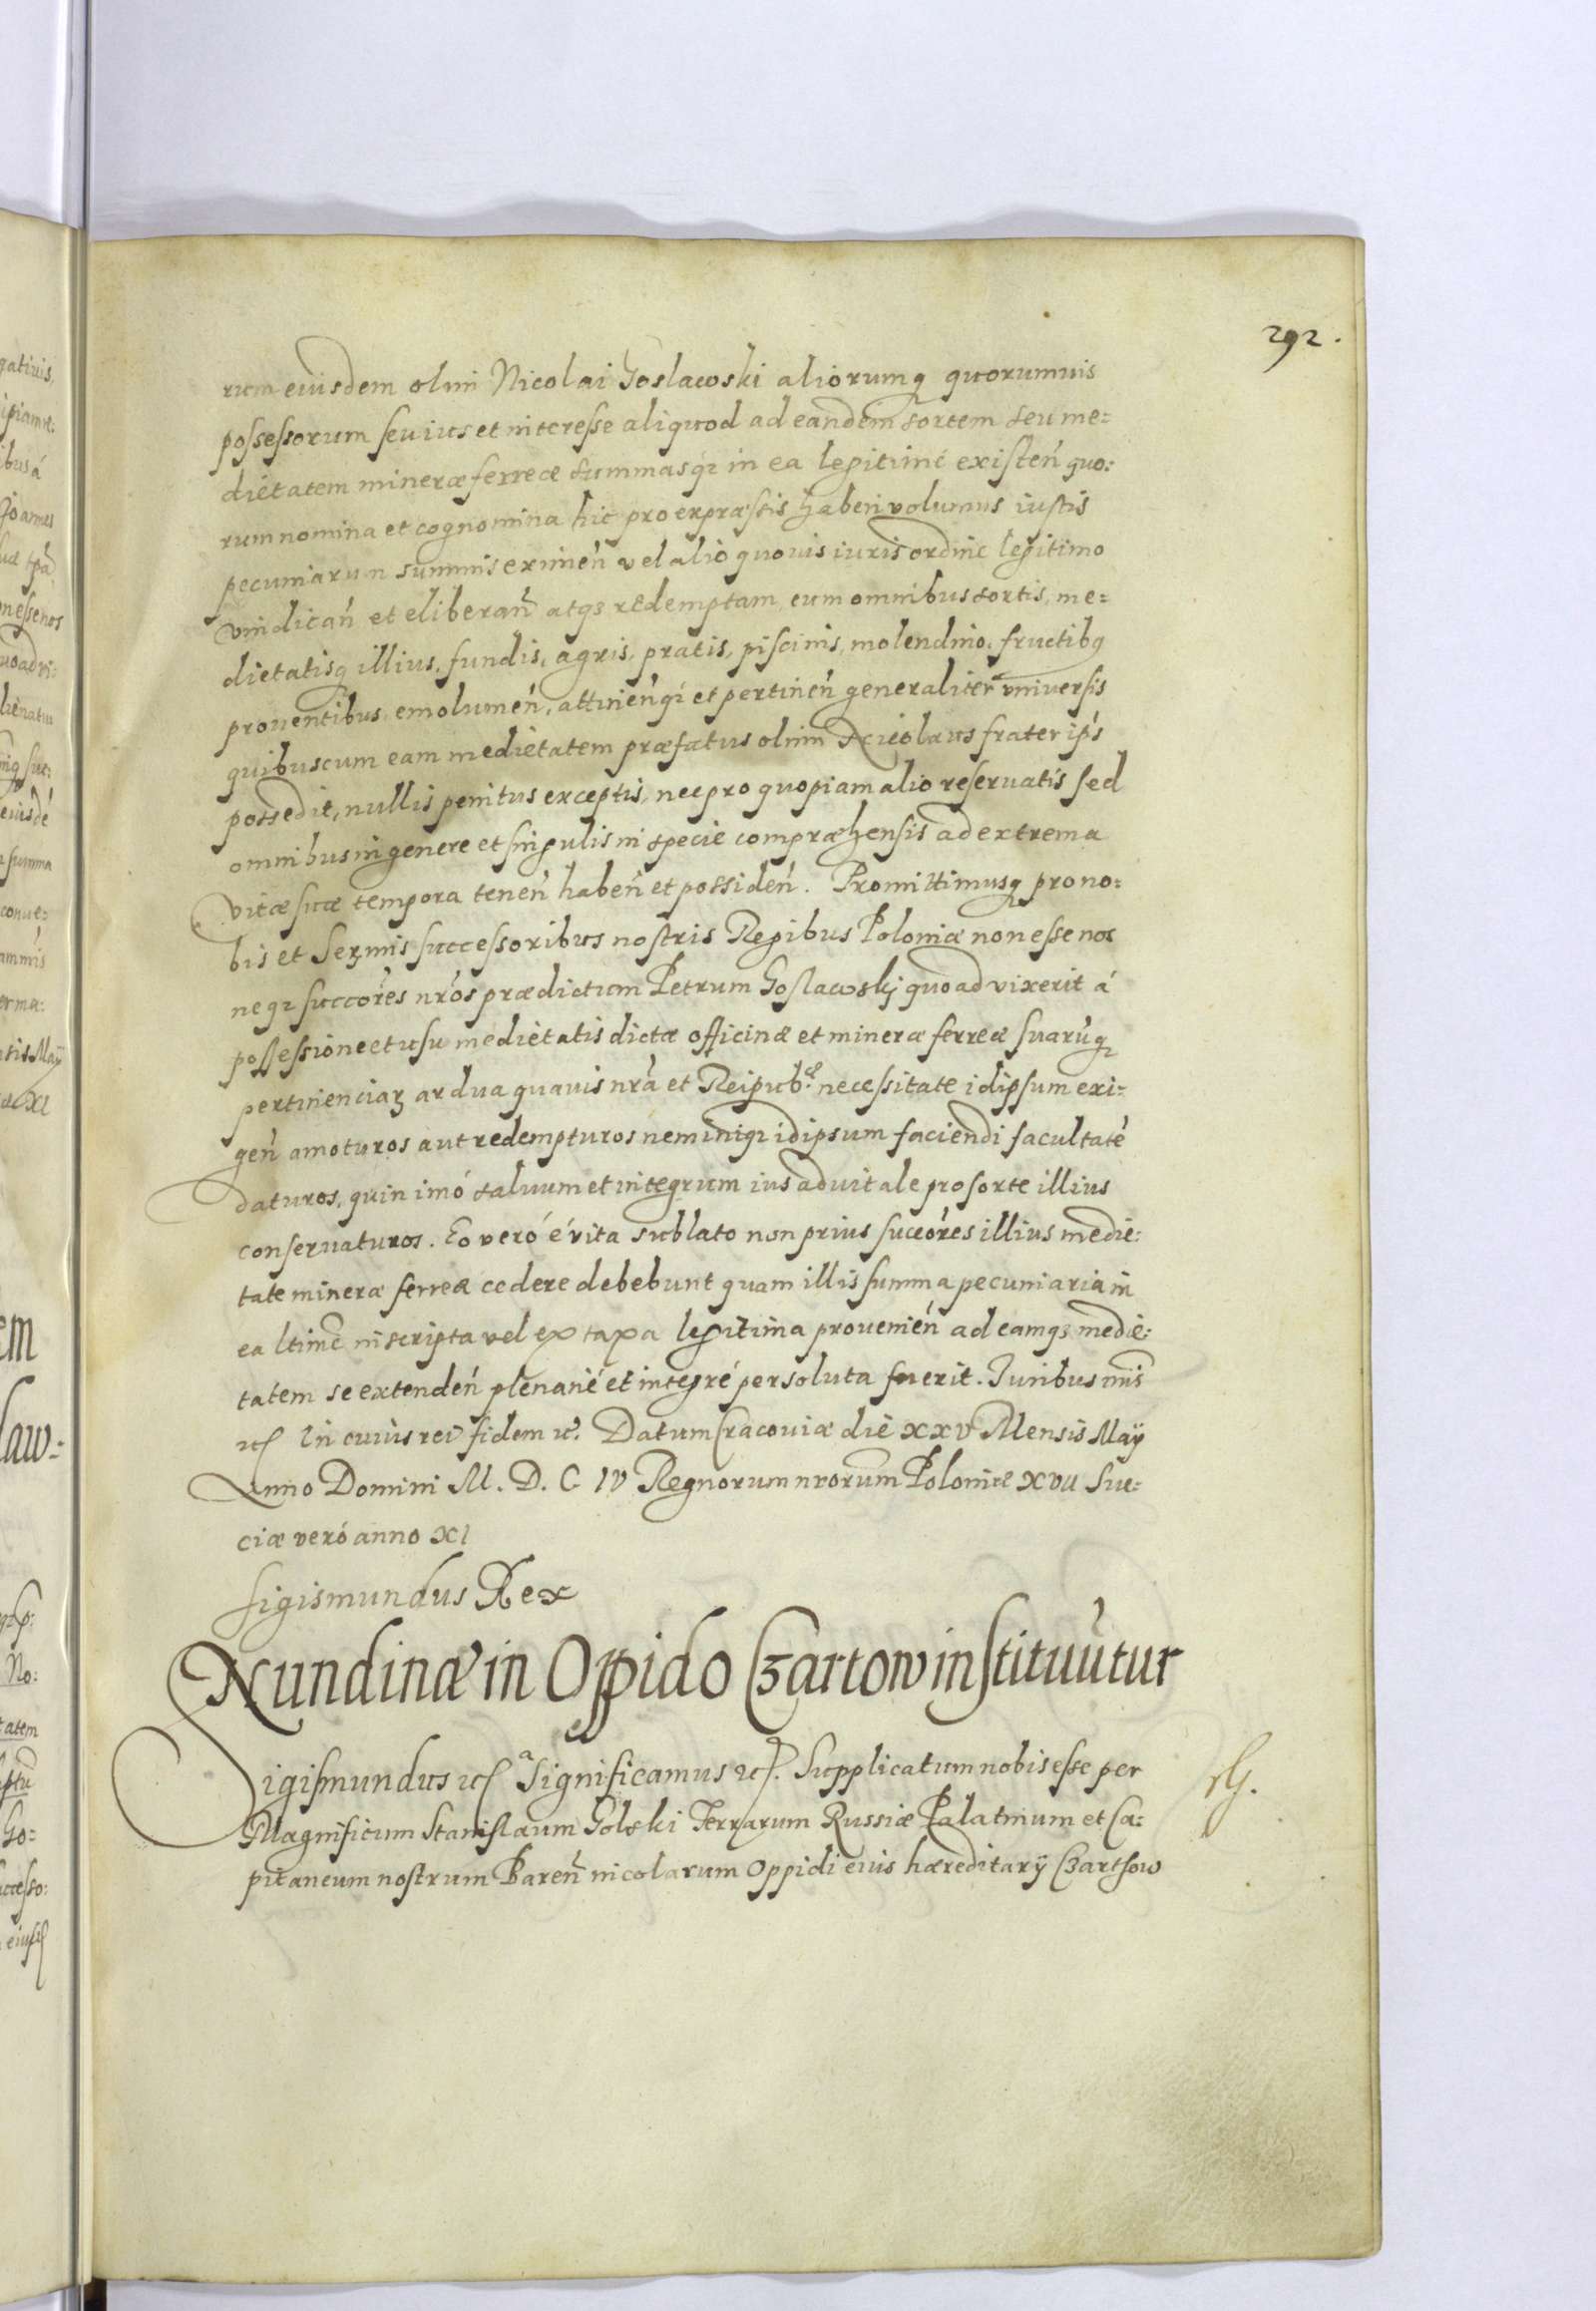 292.
rum eiusdem olim Nicolai Goslawski aliorumq quorumuis
possessorum seu ius et interesse aliquod ad eandem sortem seu me=
dietatem mineræ ferreæ summasq; in ea legitime existeń quo:
rum nomina et cognomina hic pro expræssis haberi volumus iustis
pecuniarum summis eximeń vel alio quouis iuris ordine legitimo
vindicań et eliberań atq3 redemptam cum omnibus sortis, me=
dietatisq illius, fundis, agris, pratis, piscinis, molendino, fructibq
prouentibus emolumeń, attineńq; et pertineń generaliter vniuersis
quibuscum eam medietatem præfatus olim Nicolaus frater ips
possedit, nullis penitus exceptis, nec pro quopiam alio reseruatis sed
omnibus in genere et singulis in specie compræhensis ad extrema
vitæ suæ tempora teneń habeń et possideń. Promittimusq pro no=
bis et Serzmis successoribus nostris Regibus Poloniæ non esse nos
neq; succores nros prædictum Petrum Goslawskj quoad vixerit á
possessione et usu medietatis dictæ officinæ et mineræ ferreæ suarúq;
pertinenciarz ardua quauis nra et Reipub: necessitate idipsum exi=
geń amoturos aut redempturos nemíniq; idipsum faciendi facultaté
daturos, quin imó saluum et integrum ius aduitale pro sorte illius
conseruaturos. Eo veró é vita sublato non prius succores illius medie:
tate mineræ ferreæ cedere debebunt quam illis summa pecuniaria in
ea ltime inscripta vel ex taxa legitima proueniéń ad eamq3 medie:
tatem se extendeń plenarié et integré persoluta fuerit. Iuribus nris
etc In cuius rei fidem etc. Datum Cracouiæ die XXV Mensis Maÿ
Anno Domini M. D. C IV Regnorum nrorum Poloniæ XVII Sue=
ciæ veró anno XI
Sigismundus Rex
Nundinæ in Oppido Czartow instituútur
Sigismundus etc Significamus etc. Supplicatum nobis esse per
Magnificum Stanislaum Golski Terrarum Russiæ Palatinum et Ca:
pitaneum nostrum Bareń incolarum Oppidi eius hæreditarÿ Czartsow